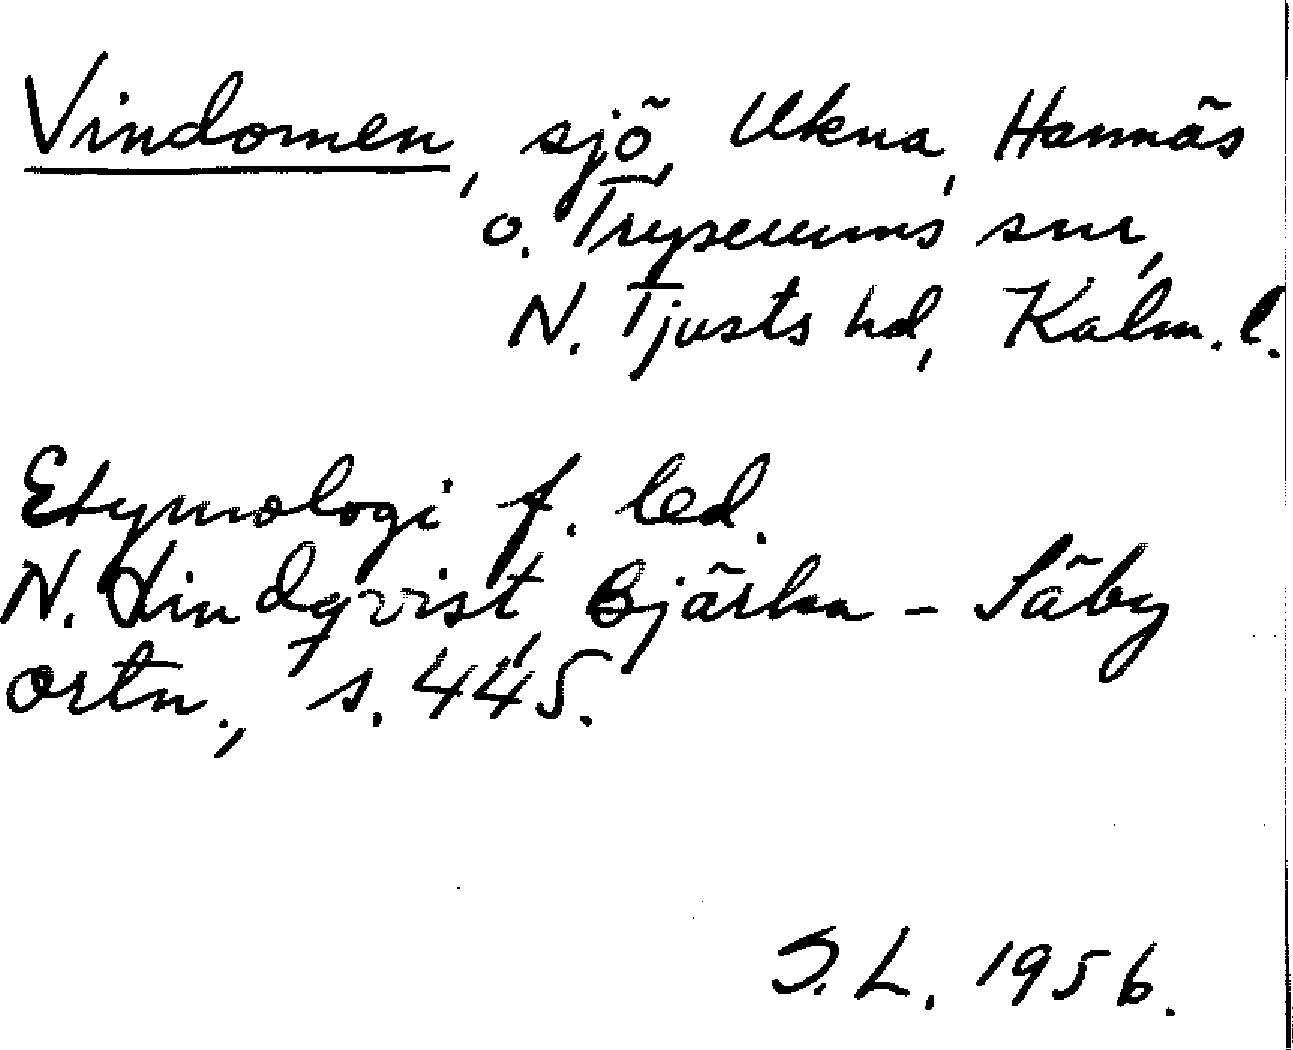 Vindomen, sjö, Ukna, Hannäs
o. Tryserums snr,
N. Tjusts hd, Kalm. l.
Etymologi f. led.
N. Lindqvist, Bjärka - Säby
ortn., s. 445.
S. L. 1956.